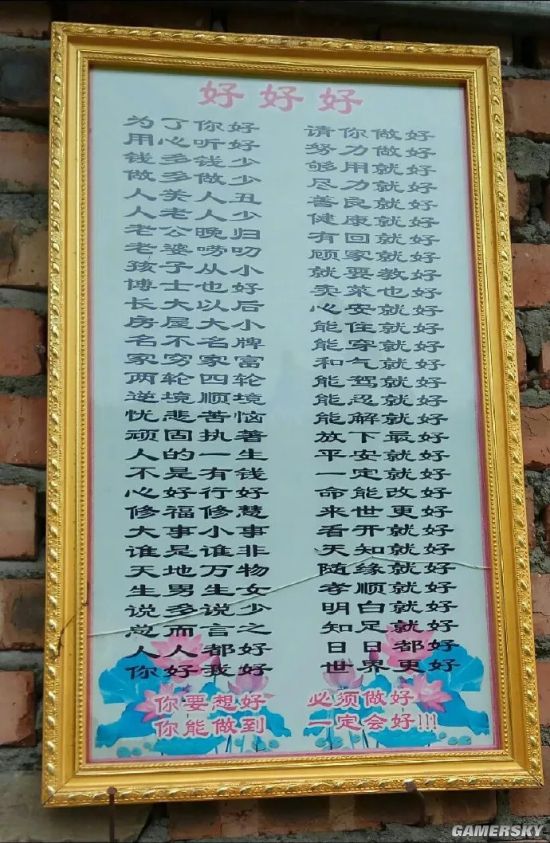 好好好
为了你好 请你做好
用心听好 努力做好
钱多钱少 够用就好
做多做少 尽力就好
人美人丑 善良就好
人老人少 健康就好
老公晚归 有回就好
老婆唠叨 顾家就好
孩子从小 就要教好
博士也好 卖菜也好
长大以后 心安就好
房屋大小 能住就好
名不名牌 能穿就好
家穷家富 和气就好
两轮四轮 能驾就好
逆境顺境 能忍就好
忧悲苦恼 能解就好
顽固执著 放下最好
人的一生 平安就好
不是有钱 一定就好
心好行好 命能改好
修福修慧 来世更好
大事小事 看开就好
谁是谁非 天知就好
天地万物 随缘就好
生男生女 孝顺就好
说多说少 明白就好
总而言之 知足就好
人人都好 日日都好
你好我好 世界更好
你要想好 必须做好
你能做到 一定会好!!!
GAMERSKY